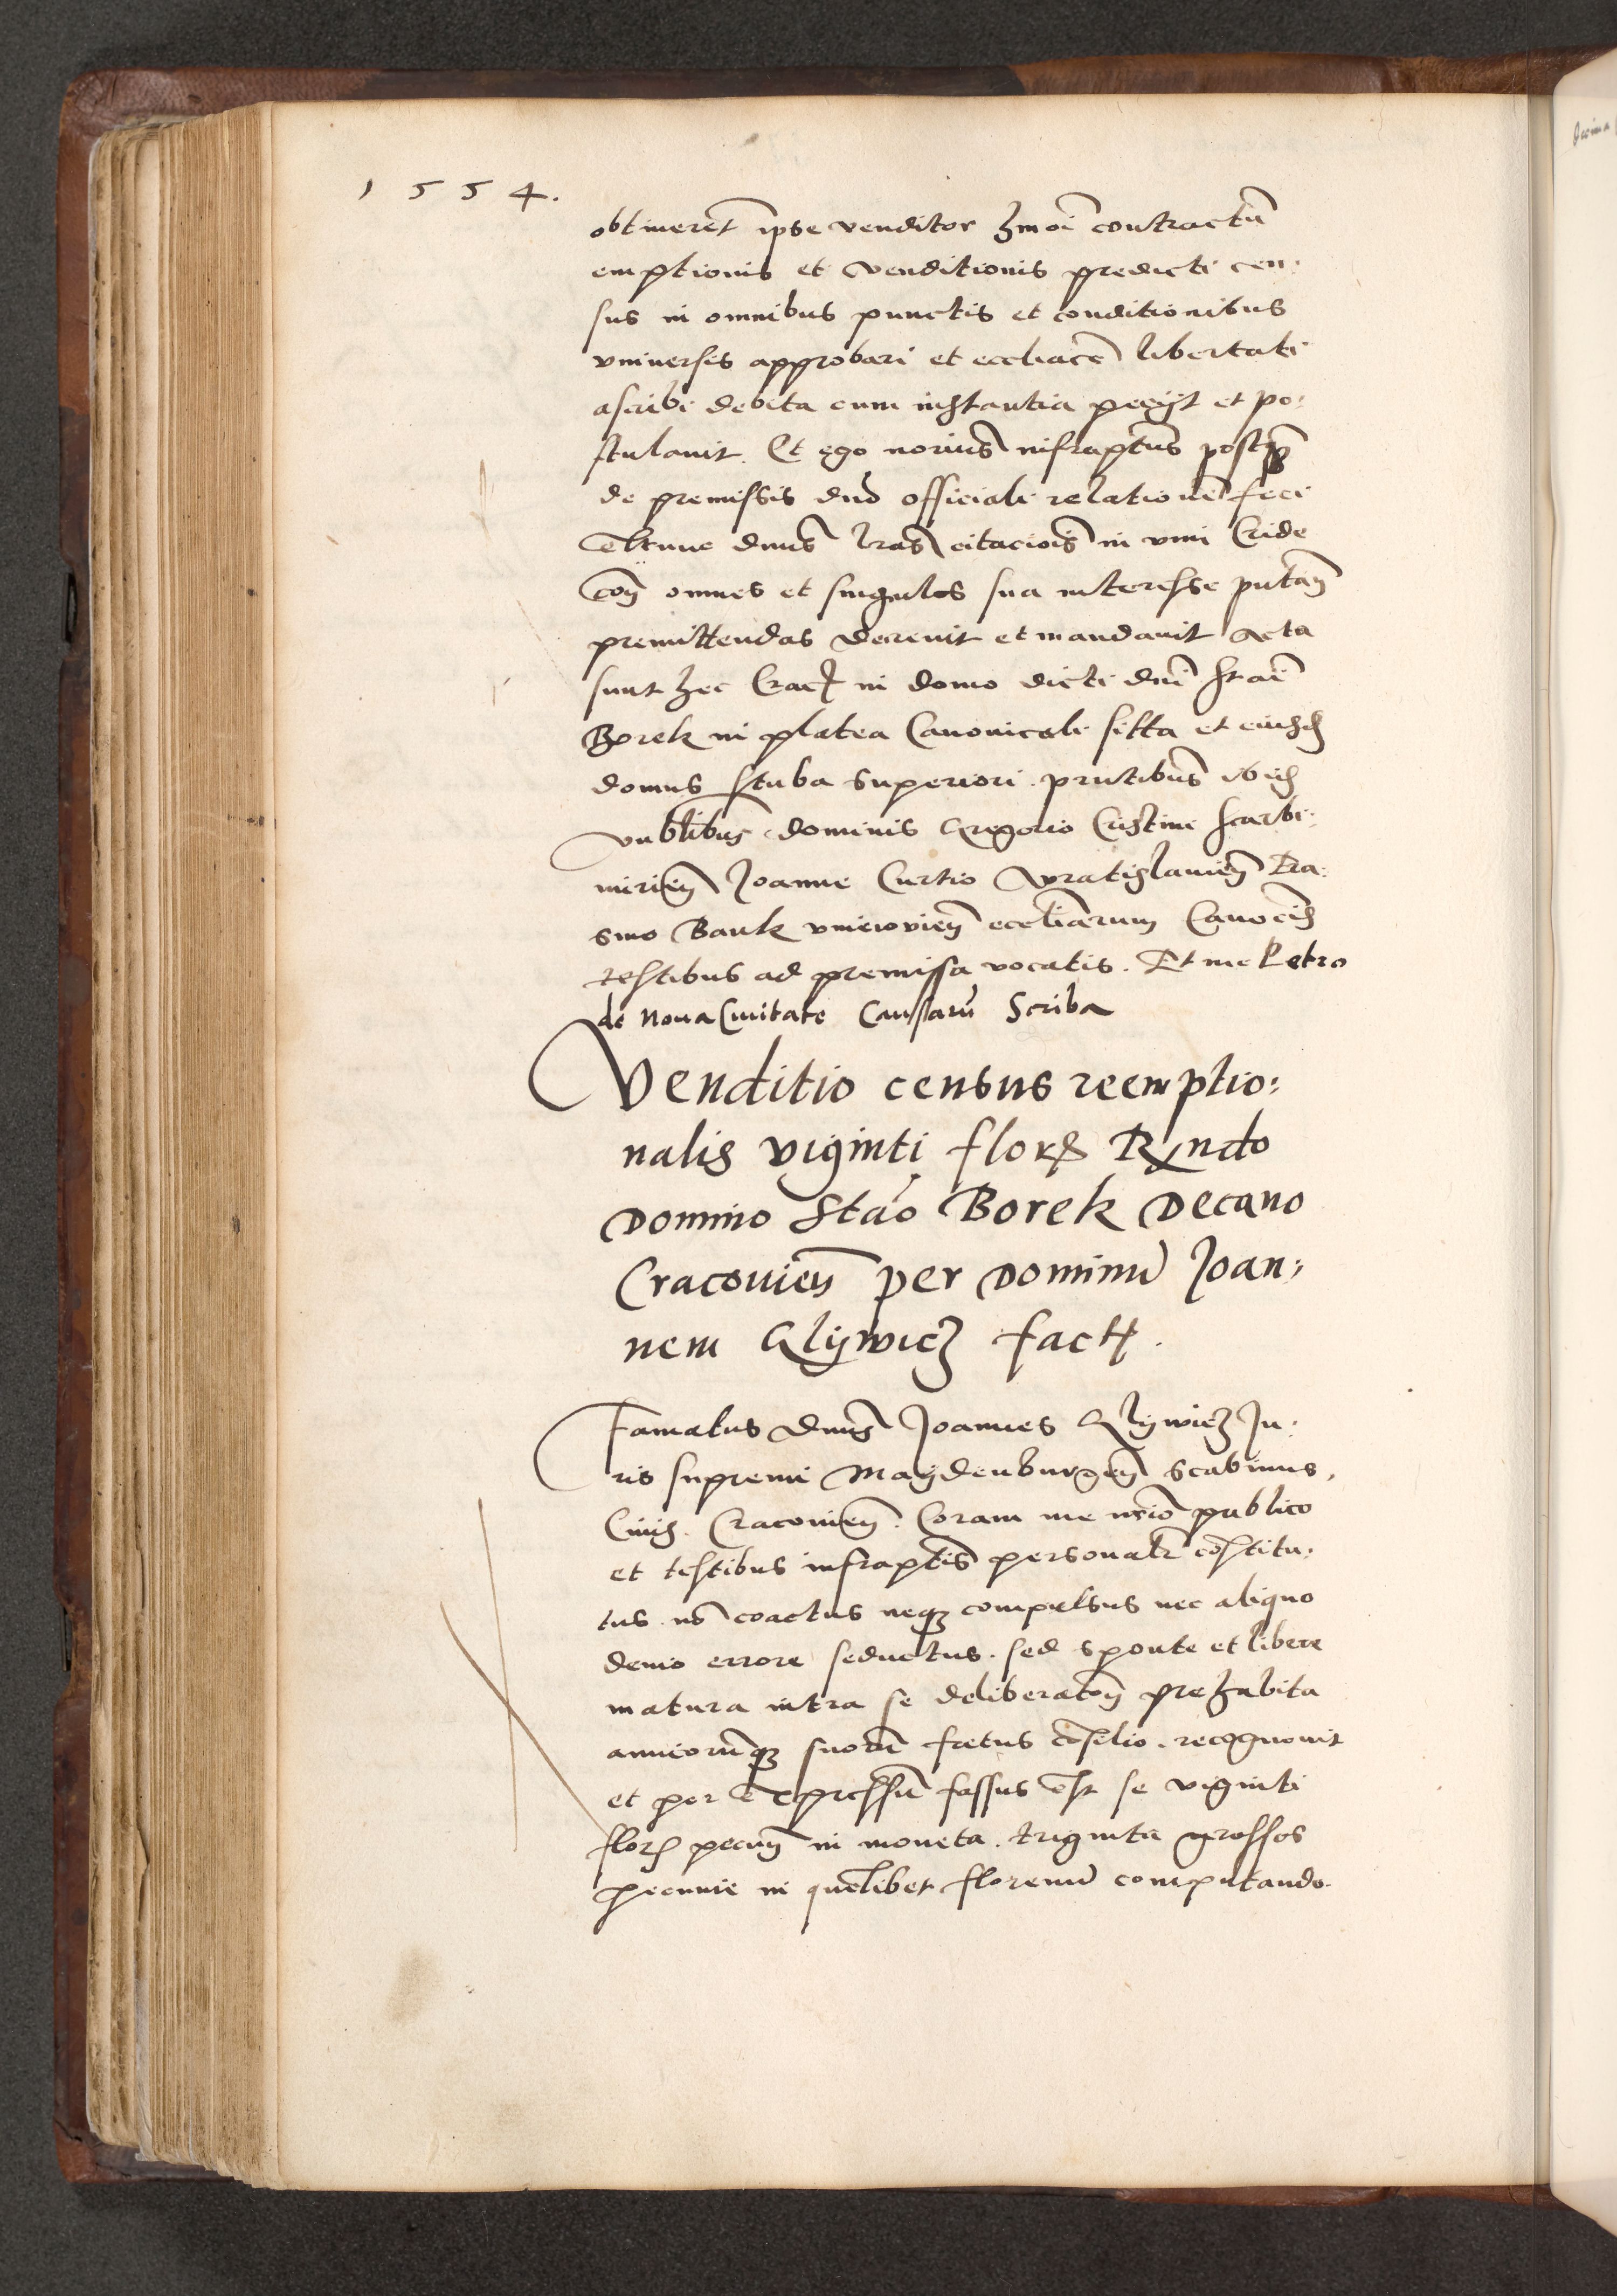 1 5 5 4.
obtineret ipse venditor hmoi contractu
emptionis et venditionis predicti cen:
sus in omnibus punctis et conditionibus
vniuersis approbari et eccliace libertati
ascribi debita cum instantia petijt et po:
stulauit. Et ego norius infraptus postq
de premissis dno officiali relatione feci
Extunc dnus lras citaciois in vim Cride
con omnes et singulos sua interesse putan
premittendas decreuit et mandauit Acta
sunt hec Crac in domo dicti dni Stai
Borek in platea Canonicali sitta et eiusd
domus stuba superiori. pntibus ibid
vnblibus dominis Gregorio Cristini Scarbi:
mirien Joanne Curtio Wratislauien Era:
smo Bank vnieiouien eccliarum Canocis
testibus ad premissa vocatis. Et me Petro
de Noua Ciuitate Causaru Scriba
Venditio census reemptio:
nalis viginti flor Rndo
Domino Stao Borek Decano
Cracouien per Dominu Joan:
nem Glijwicz fact.
Famatus dnus Joannes Glijwicz Ju:
ris supremi Maijdenburgen Scabinus,
Ciuis. Cracouien. Coram me nrio publico
et testibus infraptis personalr costitu:
tus. no coactus neq compulsus nec aliquo
demo errore seductus. sed sponte et libere
matura intra se deliberaton prehabita
amicorumq suoru fretus cosilio. recognouit
et per expressu fassus est se viginti
flor pecun in moneta. triginta grossos
pecunie in quelibet florenu computando.